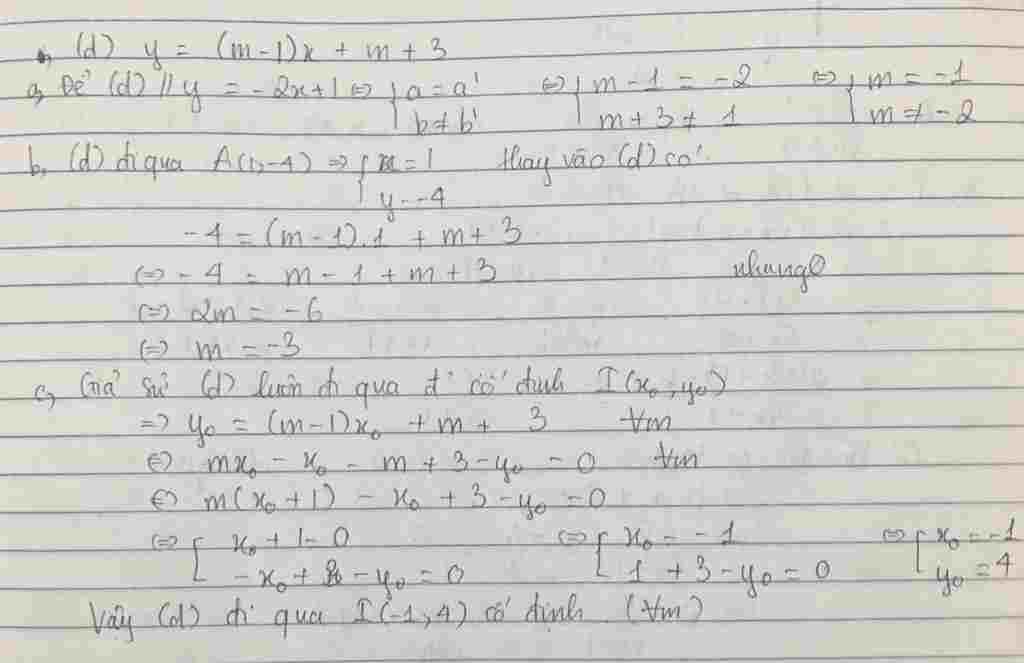 (d) y = (m-1)x + m + 3
a, Để (d) // y = -2x+1 ⇔ { a = a' ; b ≠ b' ⇔ { m - 1 = -2 ; m + 3 ≠ 1 ⇔ { m = -1 ; m ≠ -2
b, (d) đi qua A(1,-4) ⇒ { x = 1 ; y = -4 thay vào (d) có:
-4 = (m-1).1 + m + 3
⇔ -4 = m - 1 + m + 3
⇔ 2m = -6
⇔ m = -3
c, Giả sử (d) luôn đi qua đ' cố định I(x₀; y₀)
⇒ y₀ = (m-1)x₀ + m + 3 ∀m
⇔ mx₀ - x₀ - m + 3 - y₀ = 0 ∀m
⇔ m(x₀ + 1) - x₀ + 3 - y₀ = 0
⇔ [ x₀ + 1 = 0 ; -x₀ + 3 - y₀ = 0 ⇔ [ x₀ = -1 ; 1 + 3 - y₀ = 0 ⇔ [ x₀ = -1 ; y₀ = 4
Vậy (d) đi qua I(-1,4) cố định (∀m)